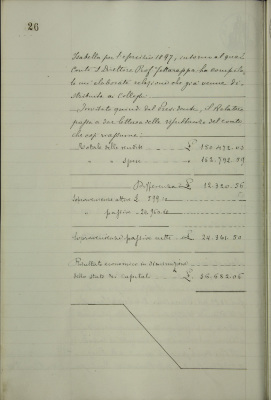 26
Isabella per l'esercizio 1897, intorno al quale
Conto il Direttore Prof. Jattarappa ha compilato
la elaborata relazione che già venne di-
stribuita ai Colleghi.
Invitato quindi dal Presidente, il Relatore
passa a dar lettura delle risultanze del conto
che così riassume:
Totale delle rendite £
" " spese £ 162.792.
Differenza £ 12.320.56
Sopravvenienze attive £
" passive
Sopravvenienze passive nette £ 24.361.50
Risultato economico in diminuzione
dello stato dei capitali £ 36.682.06